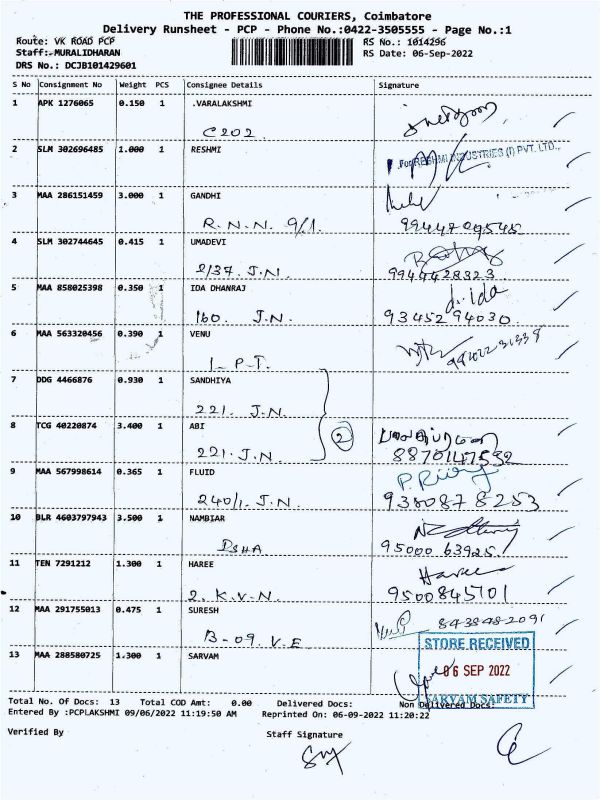 THE PROFESSIONAL COURIERS, Coimbatore
Delivery Runsheet - PCP - Phone No.:0422-3505555 - Page No.:1
Route: VK ROAD PCP RS No.: 1014296
Staff:-MURALIDHARAN RS Date: 06-Sep-2022
DRS No.: DCJB101429601
S No Consignment No Weight PCS Consignee Details Signature
1 APK 1276065 0.150 1 .VARALAKSHMI
C202
2 SLM 302696485 1.000 1 RESHMI
For RESHMI INDUSTRIES (I) PVT. LTD.,
3 MAA 286151459 3.000 1 GANDHI
R.N.N. 9/1. 9944709545
4 SLM 302744645 0.415 1 UMADEVI
2/37. J.N. 9944428323
5 MAA 858025398 0.350 1 IDA DHANRAJ
Ida
160. J.N. 9345294030.
6 MAA 563320456 0.390 1 VENU
1-P.T.
7 DDG 4466876 0.930 1 SANDHIYA
221. J.N.
8 TCG 40220874 3.400 1 ABI
2
221. J.N. 8870147532
9 MAA 567998614 0.365 1 FLUID
240/1. J.N. 9380878253
10 BLR 4603797943 3.500 1 NAMBIAR
95000 63925
11 TEN 7291212 1.300 1 HAREE
Haree
2. K.V.N. 9500845101
12 MAA 291755013 0.475 1 SURESH
8438482091
B-09. V.E
STORE RECEIVED
13 MAA 288580725 1.300 1 SARVAM
06 SEP 2022
SARVAM SAFETY
Total No. Of Docs: 13 Total COD Amt: 0.00 Delivered Docs: Non Delivered Docs:
Entered By :PCPLAKSHMI 09/06/2022 11:19:50 AM Reprinted On: 06-09-2022 11:20:22
Verified By Staff Signature